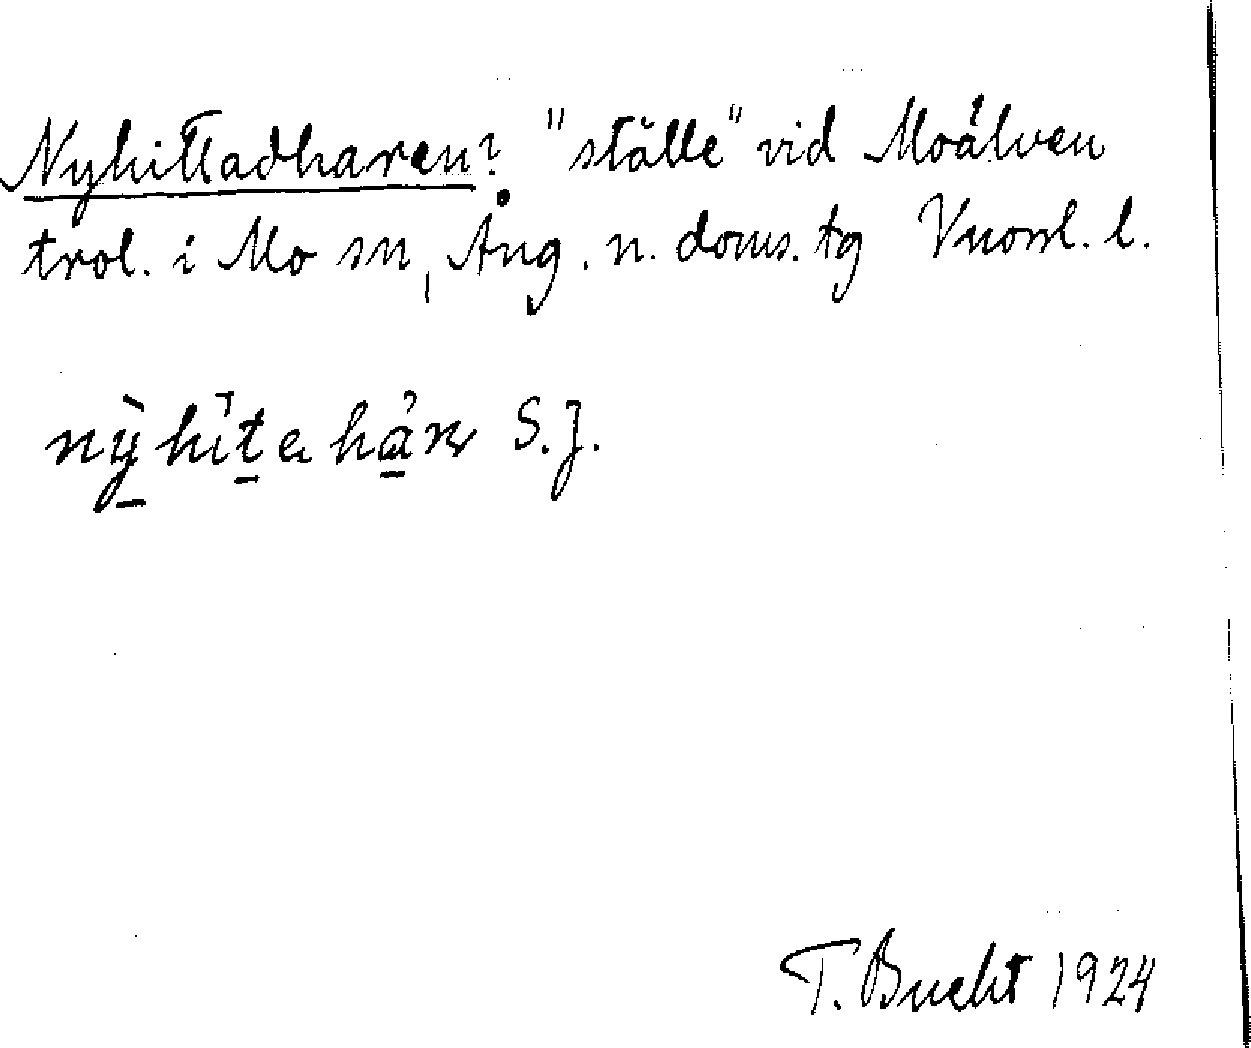 Nyhittadharen? "ställe" vid Moälven
trol. i Mo sn, Ång. n. doms. tg Vnorrl. l.
nỳhìtahar S.J.
T. Bucht 1924